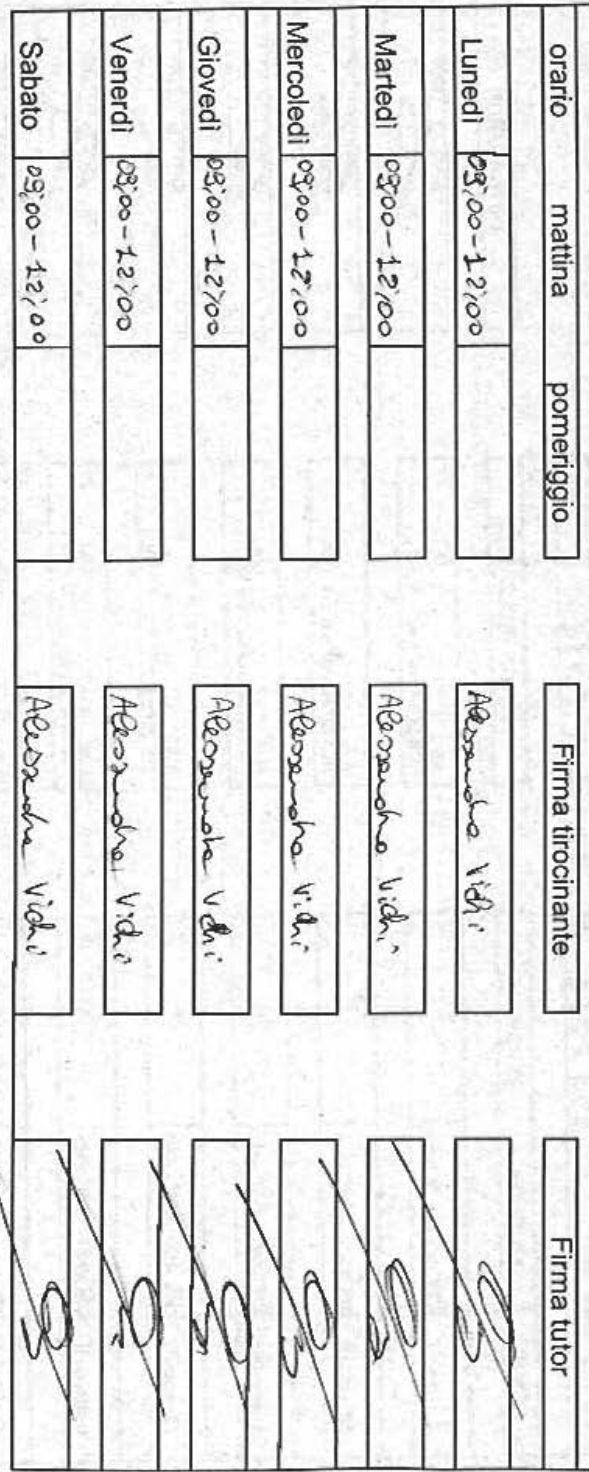 orario mattina pomeriggio Firma tirocinante Firma tutor
Lunedì 09;00-12;00 Alessandra Vichi
Martedì 09;00-12;00 Alessandra Vichi
Mercoledì 09;00-12;00 Alessandra Vichi
Giovedì 09;00-12;00 Alessandra Vichi
Venerdì 09;00-12;00 Alessandra Vichi
Sabato 09;00-12;00 Alessandra Vichi